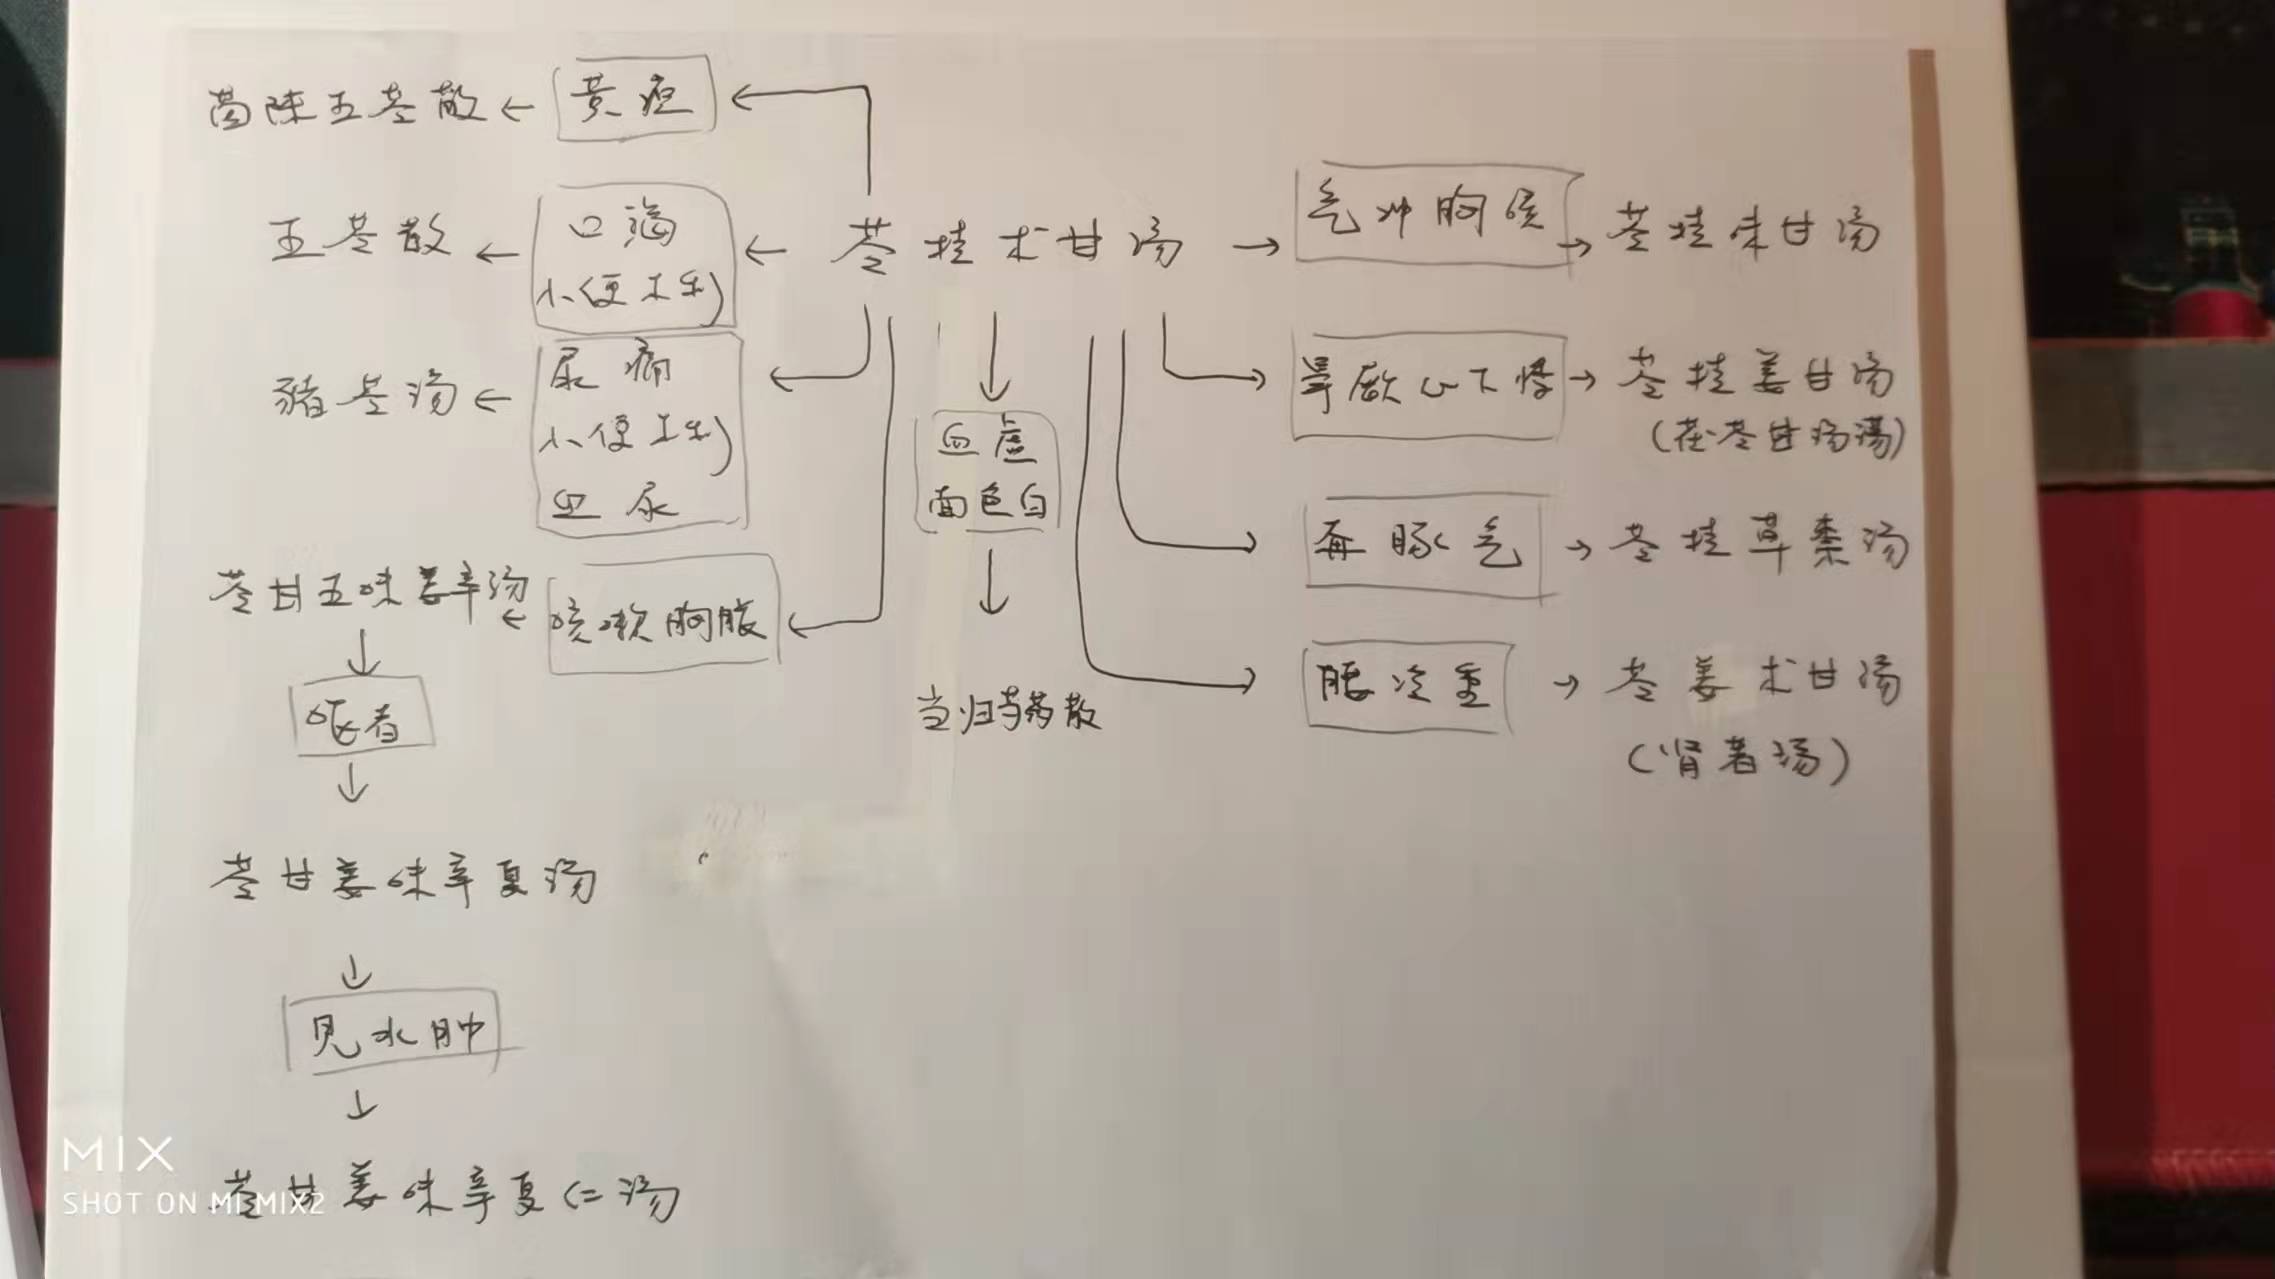 茵陈五苓散 ← 黄疸
五苓散 ← 口渴
小便不利
← 苓桂术甘汤 →
气冲胸喉 → 苓桂味甘汤
猪苓汤 ← 尿痛
小便不利
血尿
血虚
面色白
当归芍药散
厥心下悸 → 苓桂姜甘汤
(茯苓甘汤)
奔豚气 → 苓桂草枣汤
腰冷重 → 苓姜术甘汤
(肾着汤)
苓甘五味姜辛汤 ← 咳嗽胸胀
呕者
苓甘姜味辛夏汤
见水肿
苓甘姜味辛夏仁汤
MIX
SHOT ON MI MIX2